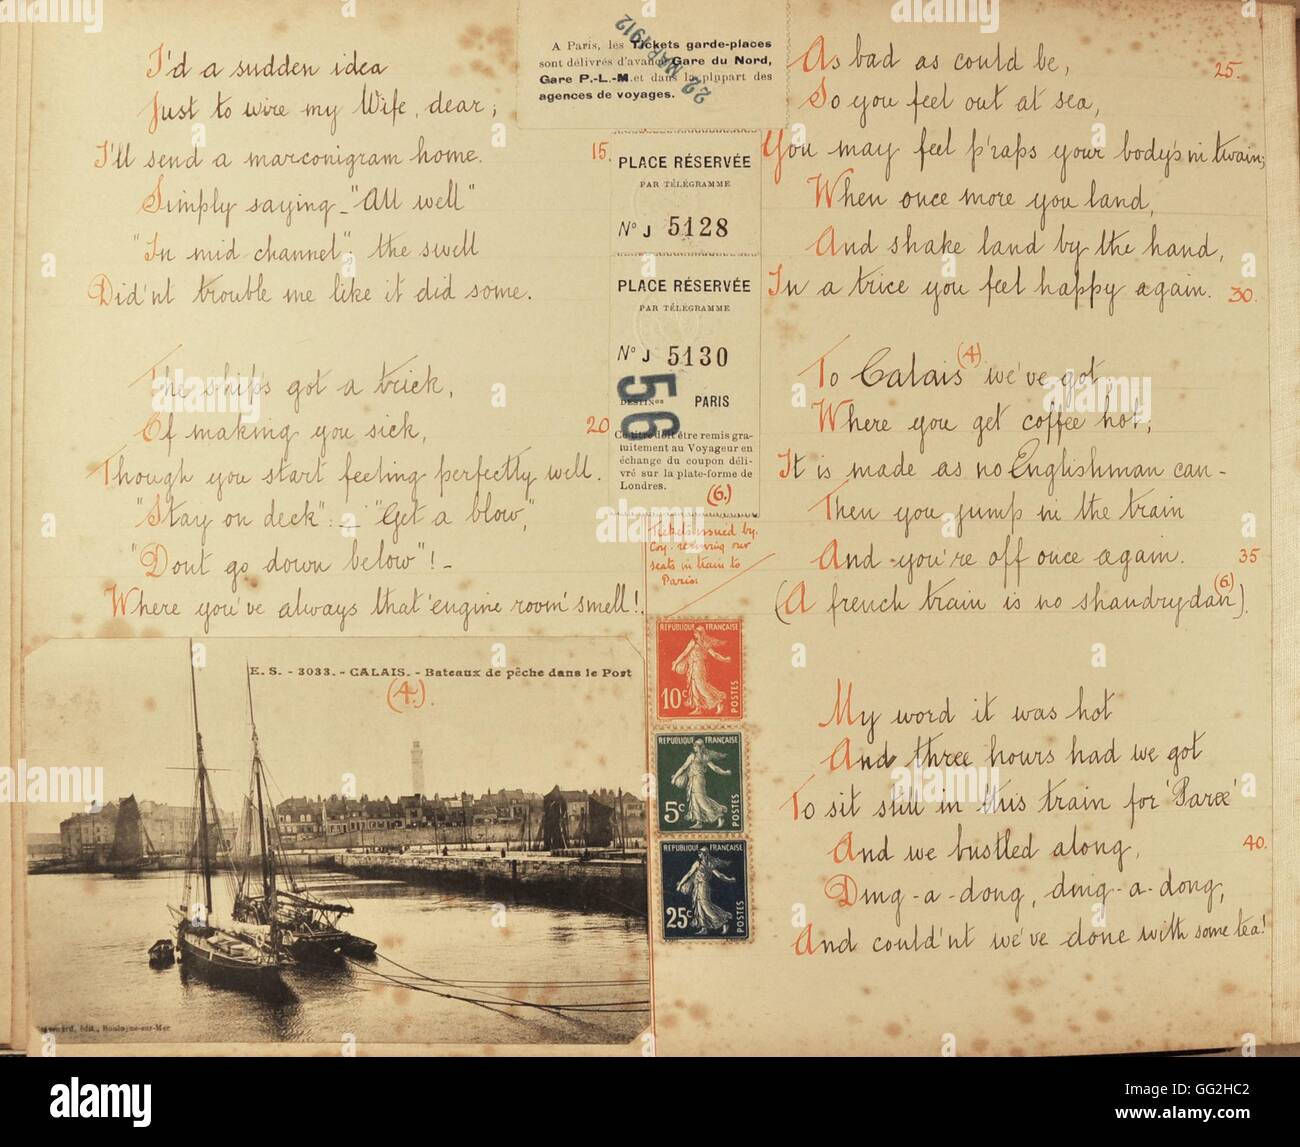 I'd a sudden idea
Just to wire my Wife, dear;
I'll send a marconigram home.
Simply saying - "All well"
"In mid channel"; the swell
Did'nt trouble me like it did some.
The ships got a trick,
Of making you sick,
Though you start feeling perfectly well.
"Stay on deck": - "Get a blow,"
"Dont go down below"! -
Where you've always that 'engine room' smell!
15.
20
E. S. - 3033. - CALAIS. - Bateaux de pêche dans le Port
(4.)
édit., Boulogne-sur-Mer
A Paris, les Tickets garde-places
sont délivrés d'avance Gare du Nord,
Gare P.-L.-M. et dans la plupart des
agences de voyages.
22 MAR 1912
PLACE RÉSERVÉE
PAR TÉLÉGRAMME
No J 5128
PLACE RÉSERVÉE
PAR TÉLÉGRAMME
No J 5130
56
DESTINon PARIS
Ce titre doit être remis gra-
tuitement au Voyageur en
échange du coupon déli-
vré sur la plate-forme de
Londres.
(6.)
Tickets issued by.
Coy. reserving our
seats in train to
Paris.
REPUBLIQUE FRANÇAISE
10c POSTES
REPUBLIQUE FRANÇAISE
5c POSTES
REPUBLIQUE FRANÇAISE
25c POSTES
As bad as could be,
25.
So you feel out at sea,
You may feel p'raps your body's in twain;
When once more you land,
And shake land by the hand,
In a trice you feel happy again. 30.
To Calais (4) we've got,
Where you get coffee hot,
It is made as no Englishman can -
Then you jump in the train
And - you're off once again. 35
(A french train is no shandrydan (6)).
My word it was hot
And three hours had we got
To sit still in this train for 'Paree'
And we bustled along, 40.
Ding - a - dong, ding - a - dong,
And could'nt we've done with some tea!
alamy
a
alamy stock photo
GG2HC2
www.alamy.com